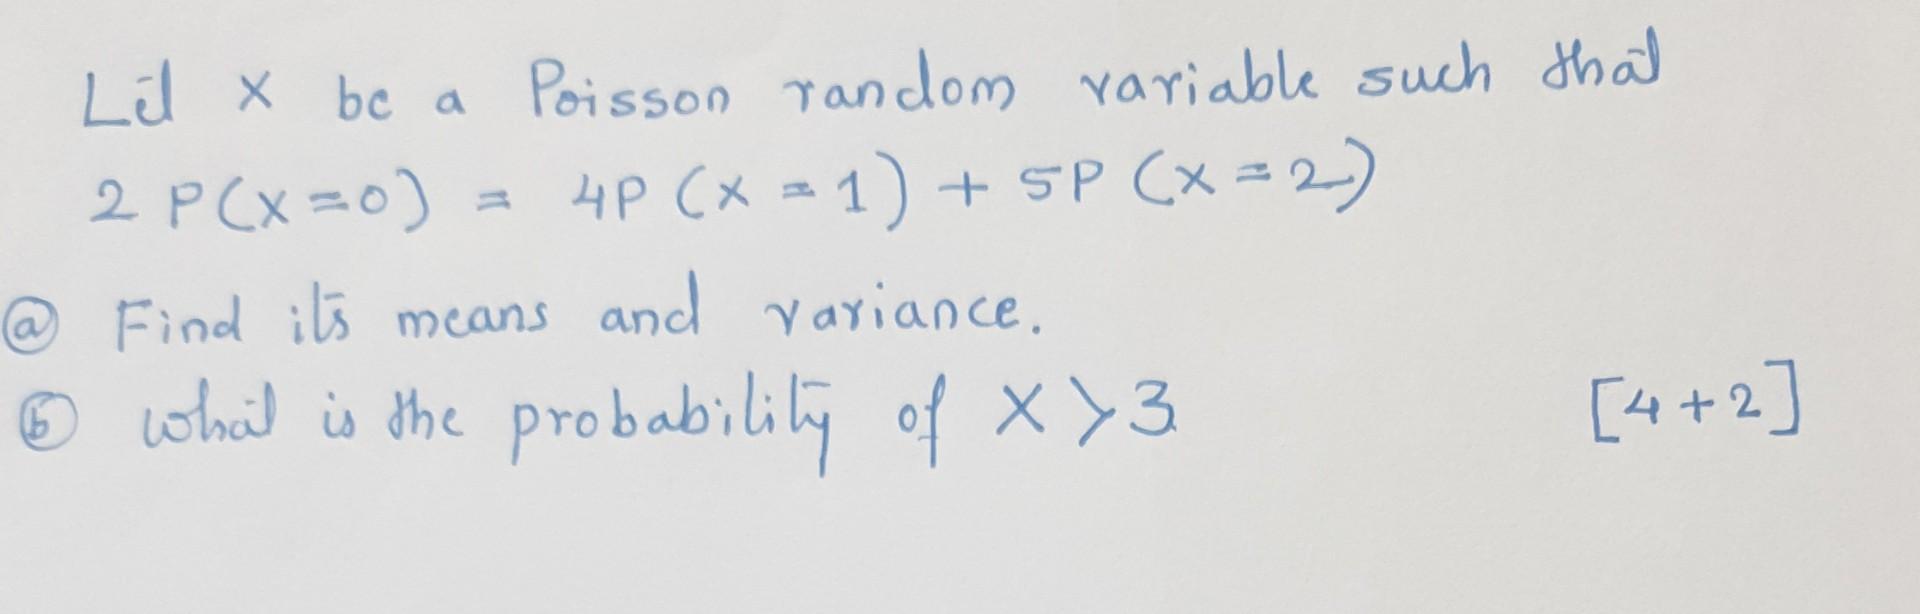 Let X be a Poisson random variable such that
2 P(X=0) = 4P (X = 1) + 5P (X = 2)
ⓐ Find its means and variance.
ⓑ what is the probability of X > 3 [4+2]